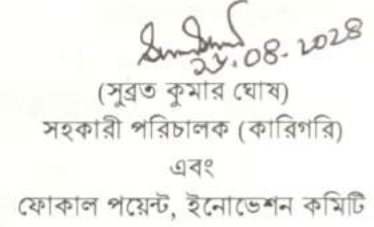 (সুব্রত কুমার ঘোষ)
সহকারী পরিচালক (কারিগরি)
এবং
ফোকাল পয়েন্ট, ইনোভেশন কমিটি